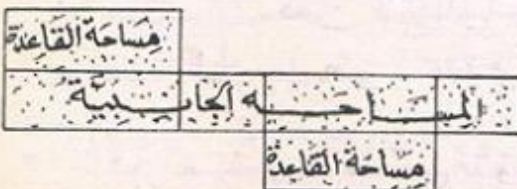 مساحة القاعدة
المساحة الجانبية
مساحة القاعدة